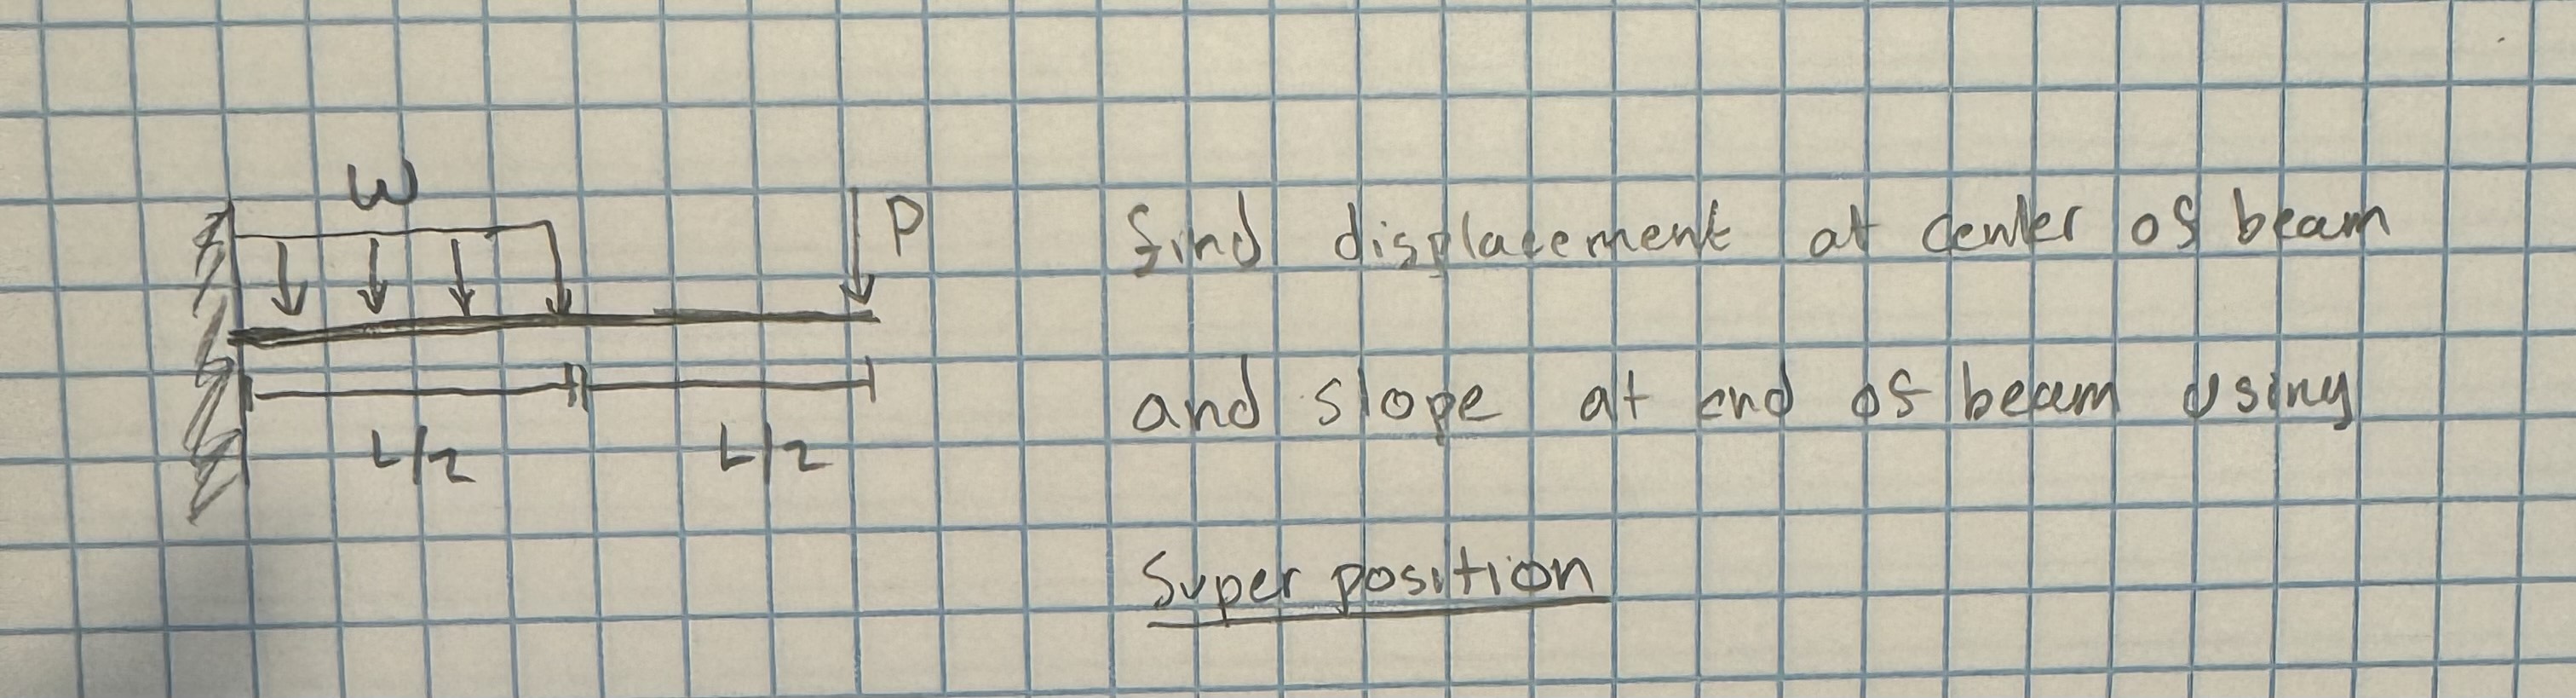 w
P
find displacement at center of beam
and slope at end of beam using
L/2
L/2
Super position